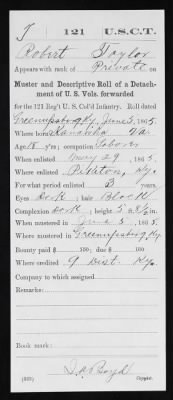 T 121 U.S.C.T.
Robert Taylor
Appears with rank of Private on
Muster and Descriptive Roll of a Detach-
ment of U. S. Vols. forwarded
for the 121 Reg't U. S. Col'd Infantry. Roll dated
Greenupsburg, Ky, June 5, 1865.
Where born Kanawha Va.
Age 18 y'rs; occupation Laborer
When enlisted May 29, 1865.
Where enlisted Ky.
For what period enlisted 3 years.
Eyes Dark; hair Black
Complexion dark; height 5 ft. in.
When mustered in June 5, 1865.
Where mustered in Greenupsburg, Ky
Bounty paid $ 100; due $ 100
Where credited 9 Dist Ky.
Company to which assigned
Remarks:
Book mark:
Boyd
(339) Copyist.